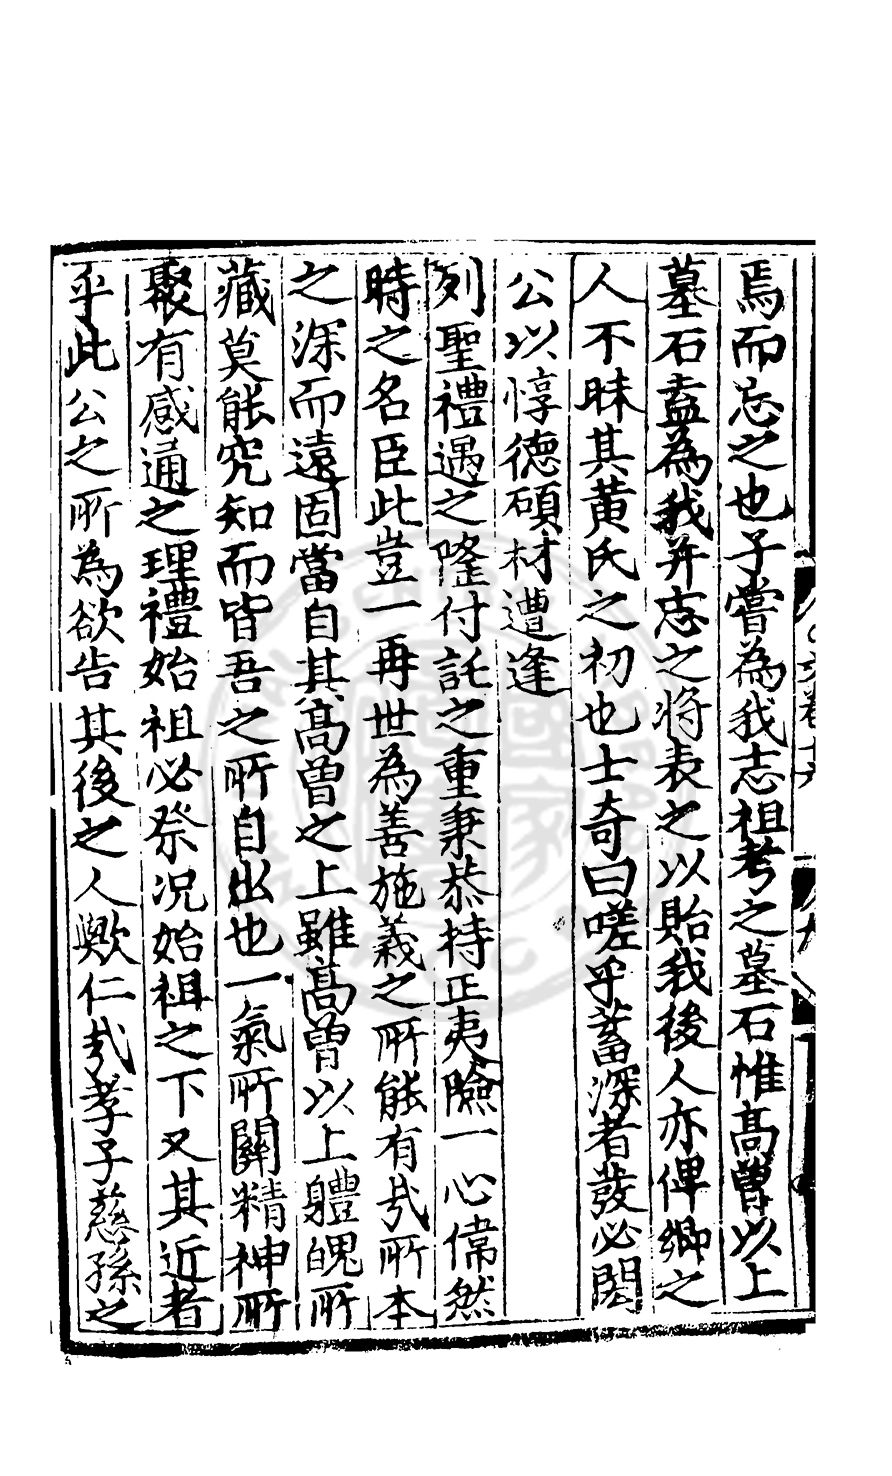 焉而忘之也子嘗為我志祖考之墓石惟髙曽以上
墓石盍為我并志之将表之以貽我後人亦俾鄉之
人不昧其黄氏之初也士奇曰嗟乎蓄深者發必閎
公以惇德碩材遭逢
列聖禮遇之隆付託之重秉恭持正夷險一心偉然
時之名臣此豈一再世為善施義之所能有㢤所本
之深而遠固當自其髙曽之上雖髙曽以上軆魄所
藏莫能究知而皆吾之所自出也一氣所關精神所
聚有感通之理禮始祖必祭况始祖之下又其近者
乎此公之所為欲告其後之人歟仁㢤孝子慈孫之